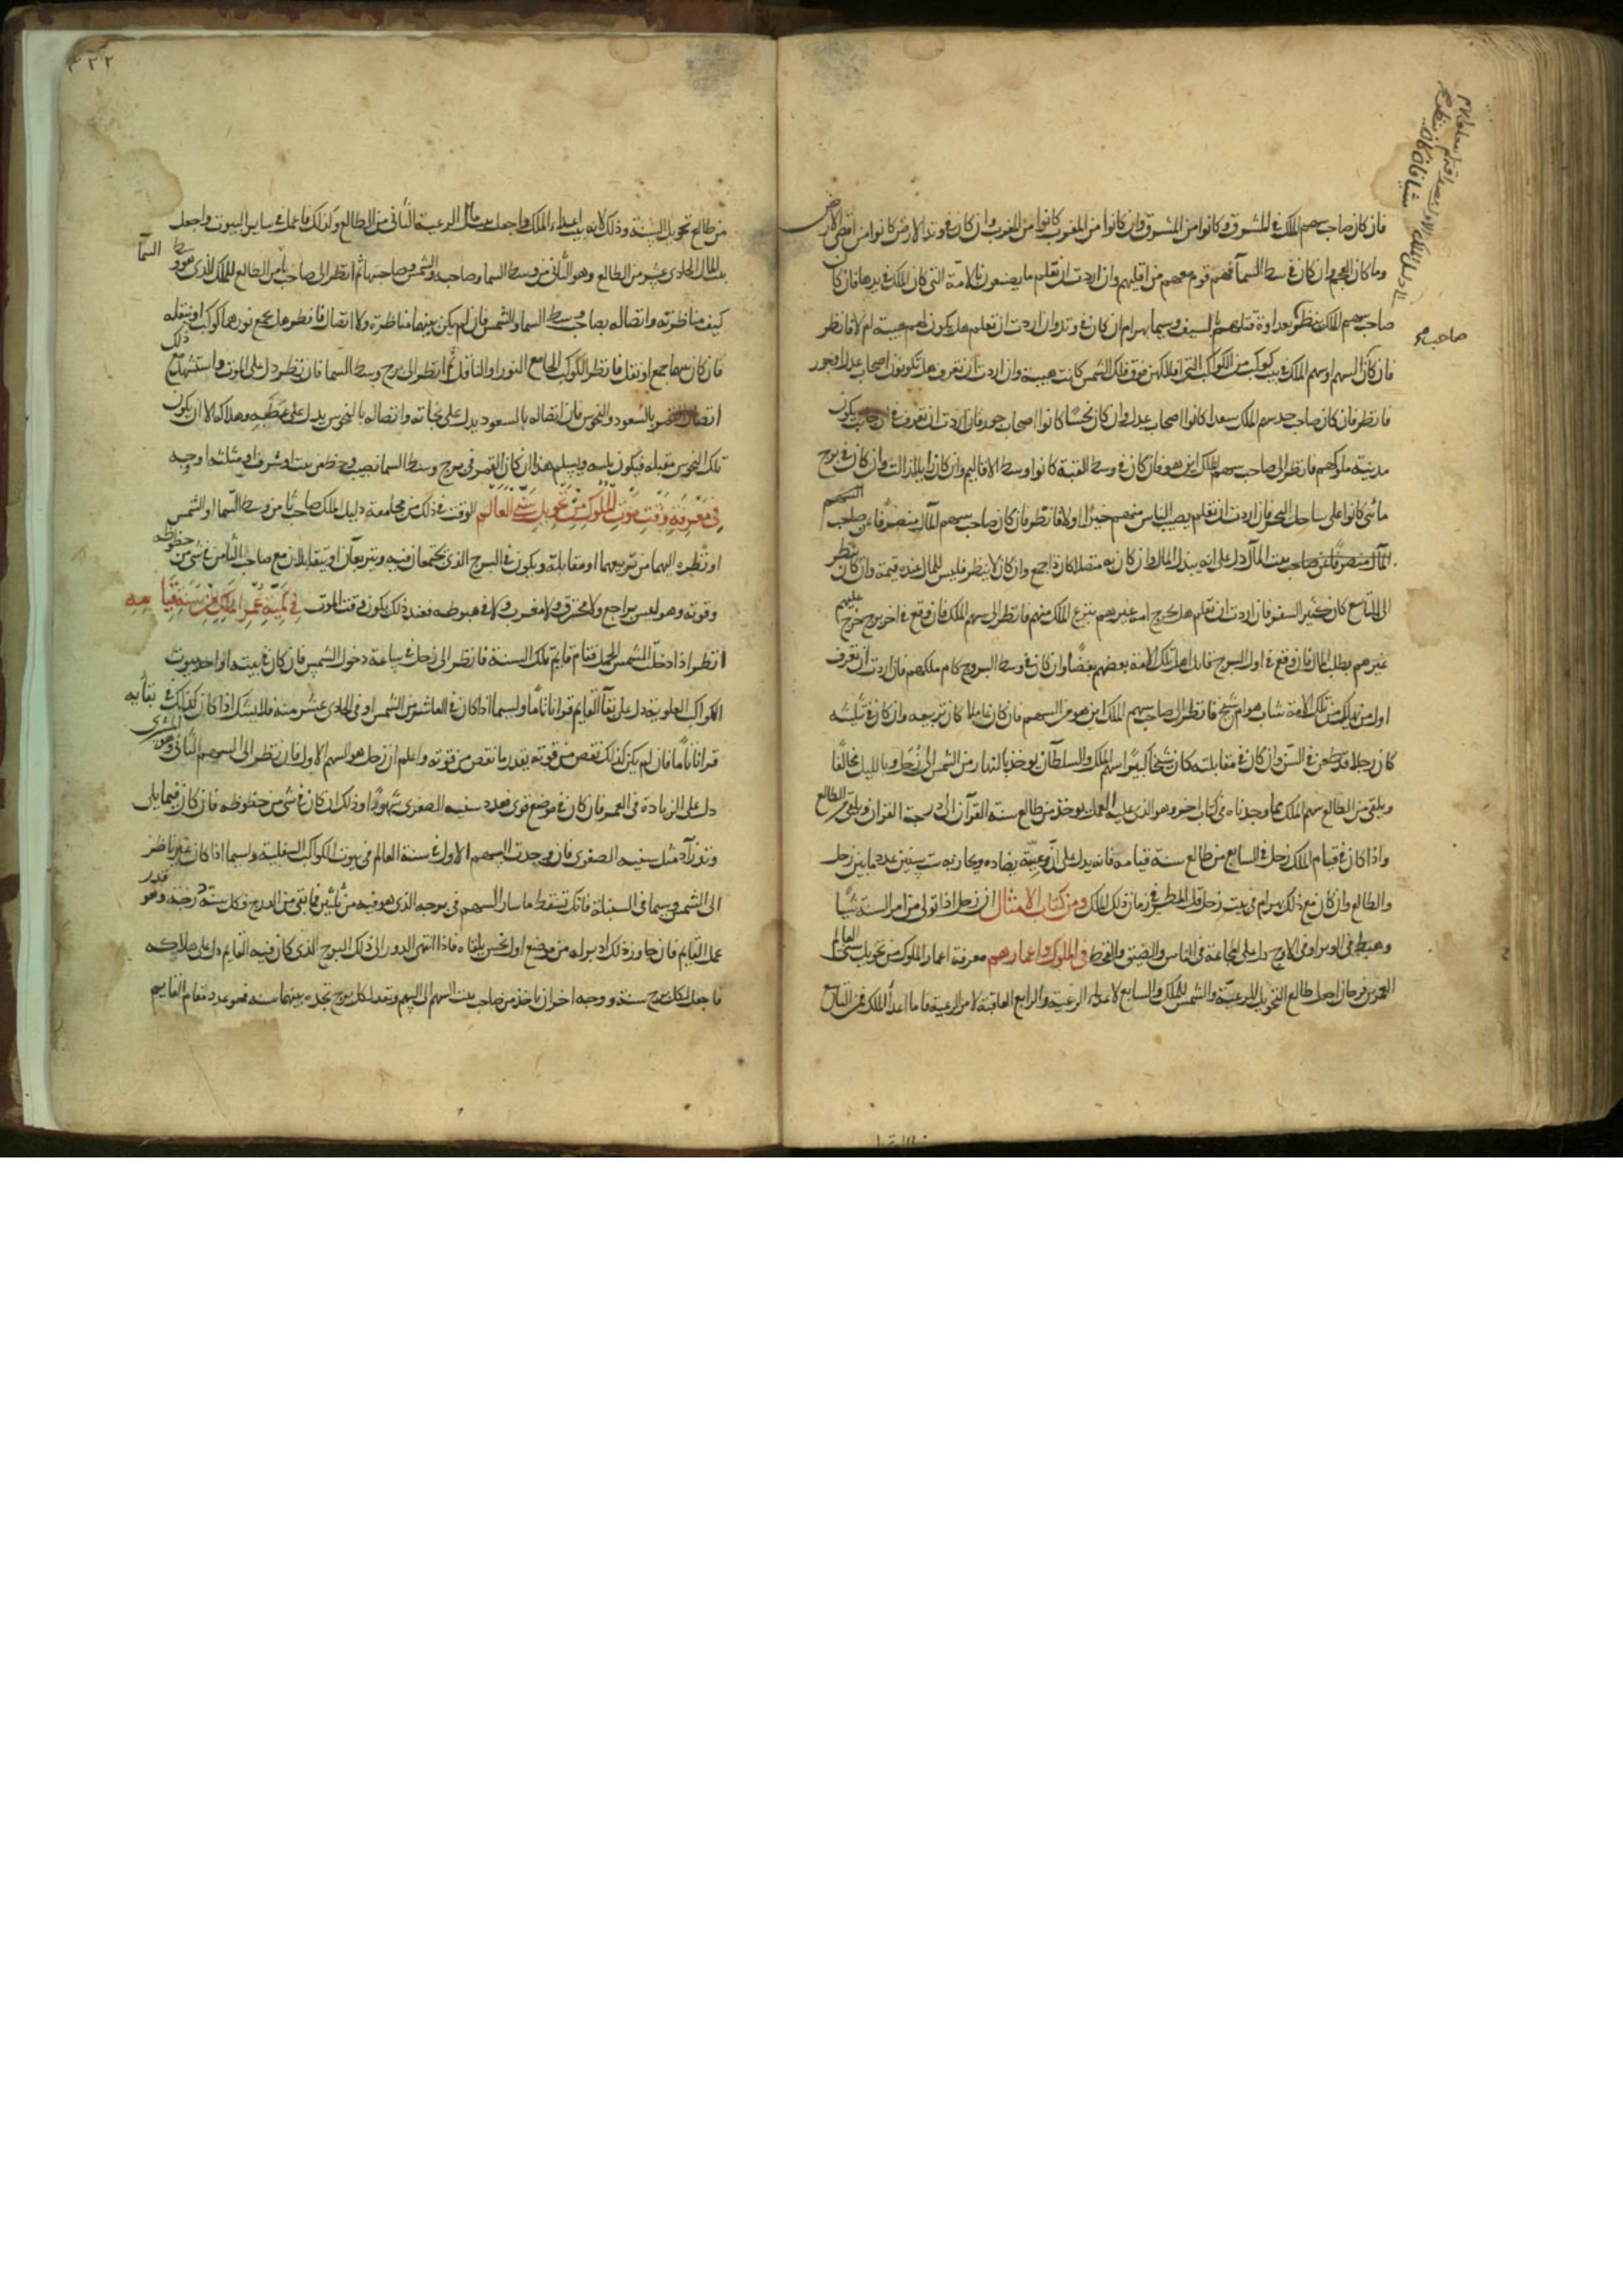 فان كان صاحب سهم الملك في المشرق وكانوا من المشرق وان كانوا من المغرب كانوا من المغرب وان كان في وتد الارض كانوا من اقصى الارض
وما كان العجم وان كان في وسط السمآ فهم قوم معهم من اقليمهم وان اردت ان تعلم ما يصنعون بالامة التي كان الملك في يدها فان كان
صاحب سهم الملك ينظر بعداوة قتلهم بالسيف وسيما بهرام ان كان في وتد وان اردت ان تعلم هل يكون لهم هيبة ام لا فانظر
صاحبه
فان كان السهم وسهم الملك في بيت كوكب من الكواكب التي افلاكهن فوق فلك الشمس كانت هيبة وان اردت ان تعرف هل تكونون اصحاب عدل او جور
فانظر فان كان صاحب حد سهم الملك سعدا كانوا اصحاب عدل وان كان نحسا كانوا اصحاب جور فان اردت ان تعرف في اي يكون
مدينة ملوكهم فانظر الى صاحب سهم الملك اين هو فان كان في وسط القبة كانوا وسط الاقاليم وان كان زايل فذالت وان كان في برج
مائي كانوا على ساحل البحر فان اردت ان تعلم يصيب الناس منهم خيرا اولا فانظر فان كان صاحب سهم المال منصرفا عن صاحب السهم
المال منصرفا عن صاحب بيت المال دل على انه يبذل المال وان كان به متصلا كان ذا جمع وان كان لا ينظر فليس للمال عنده قيمة وان كان ينظر
الى التاسع كان كثير السفر فان اردت ان تعلم هل يخرج احد غيرهم ينتزع الملك منهم فانظر الى سهم الملك فان وقع في اخر برج خرج عليهم
غيرهم يطلب المال فان وقع في اول البرج قاتل اهل تلك الامة بعضهم بعضا وان كان في وسط البروج كام ملكهم فان اردت ان تعرف
اول من يملك من تلك الامة شاب هو ام شيخ فانظر الى صاحب سهم الملك اين هو من السهم فان كان عاملا كان تربيعه وان كان في تثليثه
كان رجلا قد طعن في السن وان كان في مقابلته كان شيخا كبيرا سهم الملك والسلطان يوخذ بالنهار من الشمس الى زحل وبالليل مخالفا
ويلقى من الطالع سهم الملك مما وجدناه في كتاب اخر وهو الذي عليه العمل يوخذ من طالع سنة القرآن الى درجة القران ويلقى من الطالع
واذا كان في قيام الملك زحل في السابع من طالع سنة قيامه فانه يدل على ان رعيته يضاده ويحاربونه سنين عدد ما بين زحل
والطالع وان كان مع ذلك بهرام في بيت زحل قل المطر في زمان ذلك الملك ومن كتاب الامثال ان زحل اذا تولى من امر السنة شيئا
وهبط في الوبر او في الاوج دل على المجاعة في الناس والضيق والقحط في الملوك واعمارهم معرفة اعمار الملوك من تحويل سني العالم
العمر بن فرخان اجعل طالع التحويل للرعية والشمس للملك والسابع لاعداء الرعية والرابع العاقبة لامر الرعية فاما اعدآ الملك فمن التاسع
٤٢٢
من طالع تحويل السنة وذلك لانه بيت اعداء الملك واجعل بيت مال الرعية الثاني من الطالع وكذلك فاعمل في ساير البيوت واجعل
بيت المال الحادي عشر من الطالع وهو الثاني من وسط السما وصاحبه والشمس وصاحبها ثم انظر الى صاحب ثامن الطالع للملك الذي هو وسط السمآ
كيف مناظرته واتصاله بصاحب وسط السما والشمس فان لم يكن بينهما مناظرة ولا اتصال فانظر هل يجمع نورهما كوكب او ينقله
فان كان بينهما جمع او نقل فانظر الكوكب الجامع النور او الناقل ثم انظر الى برج وسط السما فان نظر دل على الموت واستشهد مع ذلك
اتصال القمر بالسعود والنحوس فان اتصاله بالسعود يدل على نجاته واتصاله بالنحوس يدل على عطبه وهلاكه الا ان يكون
تلك النحوس مقبلة فيكون باسه ويسلم هذا ان كان القمر في برج وسط السما نصيب وحظ من بيت او شرف او مثلثه او وجه
في معرفة وقت موت الملوك من تحويل سني العالم الوقت في ذلك من مجامعة دليل الملك صاحب ثامن وسط السما او الشمس
او نظره اليهما من تربيعهما او مقابلة ويكون في البرج الذي يجتمعان فيه ويتربعان او يتقابلان مع صاحب الثامن في شي من حظوظه
وقوته وهو ليس براجع ولا محترق ولا مغرب ولا في هبوطه فعند ذلك يكون وقت الموت في كمية عمر الملك من سنة قيامه
انظر اذا دخلت الشمس الحمل فقام قايم تلك السنة فانظر الى زحل في ساعة دخول الشمس فان كان في بيته او احد بيوت
الكواكب العلوية دل على بقآ القايم قرانا تاما ولسيما اذا كان في العاشر من الشمس او في الحادي عشر منه فلا يشك اذا كان كذلك في بقايه
قرانا تاما فان لم يكن كذلك نقص من قوته بقدر ما نقص من قوته واعلم ان زحل هو السهم الاول فان نظر الى السهم الثاني وهو المشتري
دل على الزيادة في العمر فان كان في موضع قوي فعدد سنيه الصغرى شهورا وذلك ان كان في شي من حظوظه فان كان فيما يلي
وتد زآد مثل سنيه الصغرى فان وجدت السهم الاول في سنة العالم في بيوت الكواكب السفلية ولسيما اذا كان غير ناظر
الى الشمس وسيما في السنبلة فانك تسقط ما سار السهم في برجه الذي هو فيه من ثلثين فما بقي من الدرج فكل سنة درجة وهو قدر
عمل القايم فان جاوز ذلك ادبر له من موضع اول نحس يلقاه فاذا انتهى الدور الى ذلك البرج الذي كان فيه القايم دل على هلاكه
فاجعل لكل برج سنة ووجه اخر ان ياخذ من صاحب بيت السهم الى السهم وتعد لكل برج تجده بينهما سنه فهو عدد مقام القايم